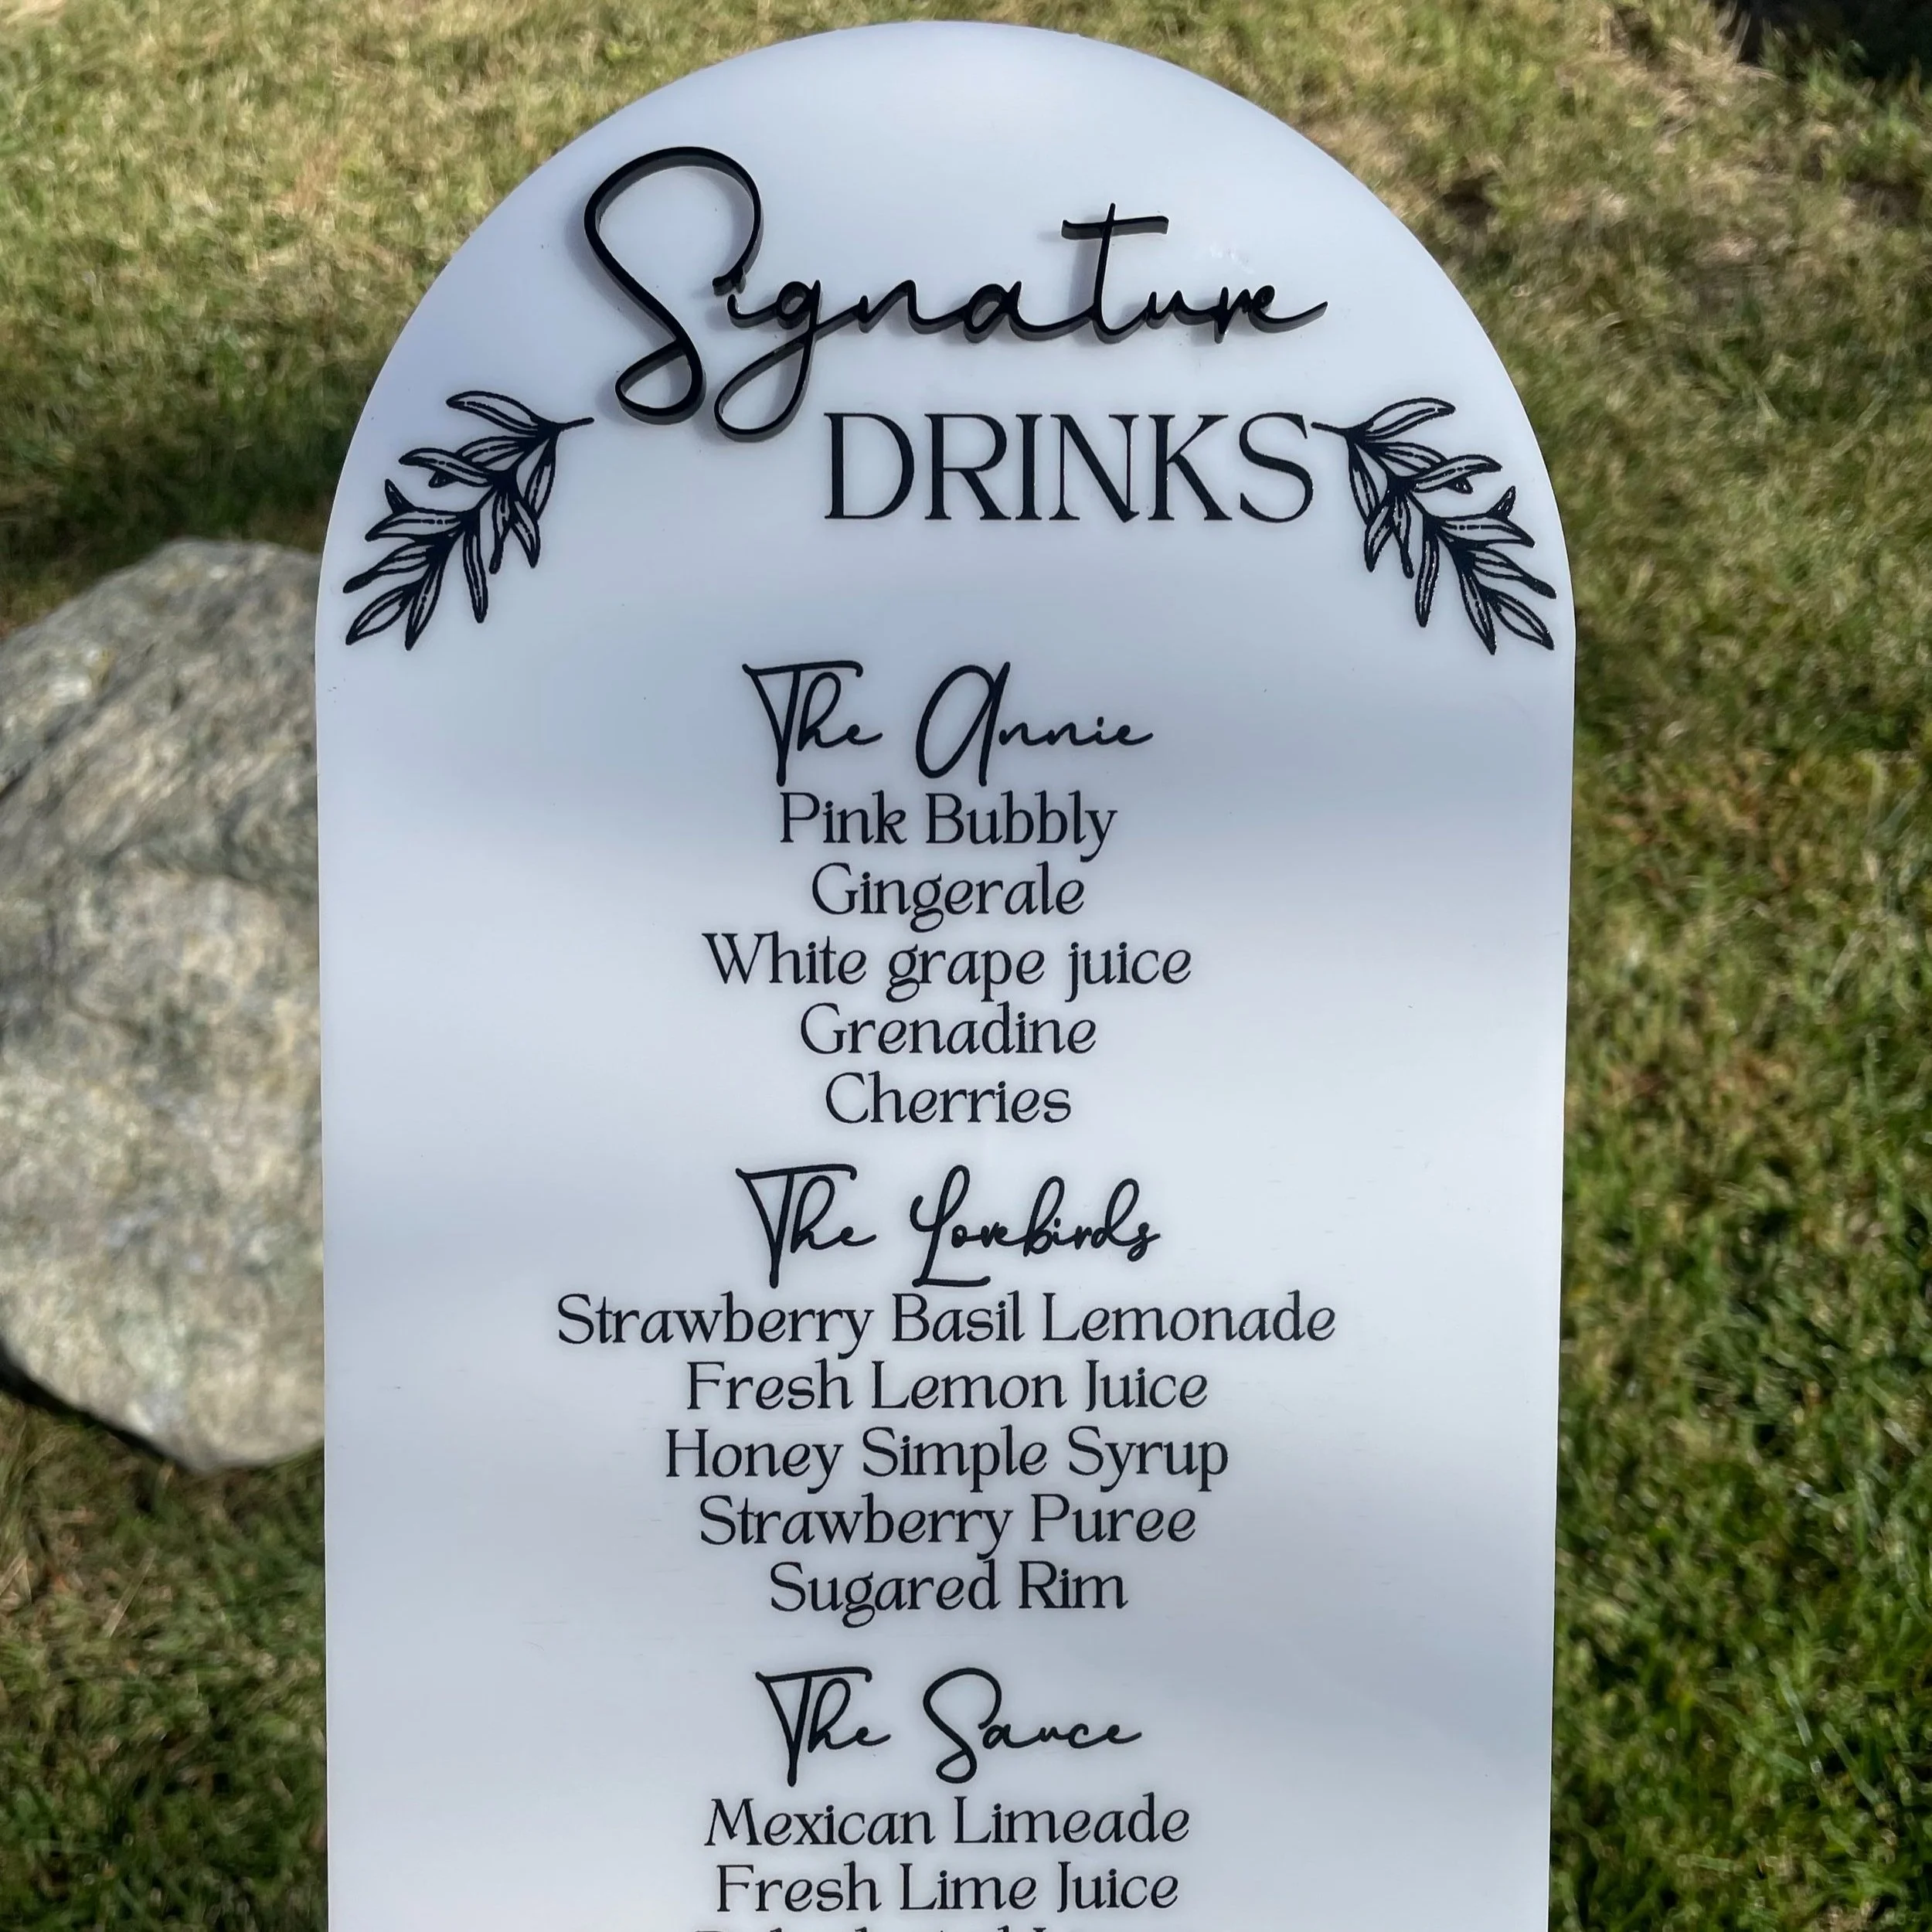 Signature
DRINKS
The Annie
Pink Bubbly
Gingerale
White grape juice
Grenadine
Cherries
The Lovebirds
Strawberry Basil Lemonade
Fresh Lemon Juice
Honey Simple Syrup
Strawberry Puree
Sugared Rim
The Sauce
Mexican Limeade
Fresh Lime Juice